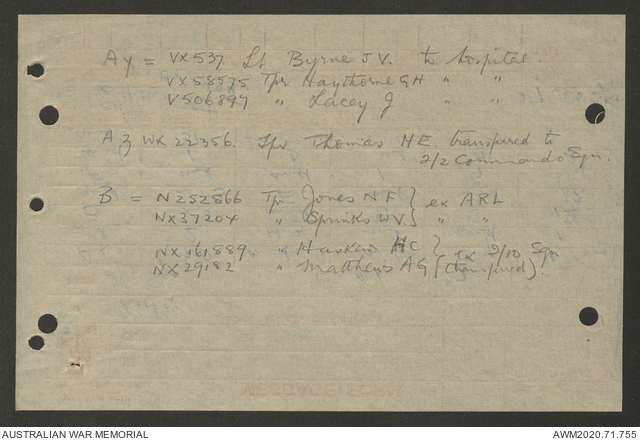 Ay = VX537 Lt Byrne J V. to hospital.
VX58575 Tpr Haythorne G H " "
V506897 " Lacey J " "
Az WX 22356. Tpr Thomas H E. transferred to
2/2 Commando Sqn.
B = N252866 Tpr Jones N F } ex ARL.
NX37204 " Sprinks W V } " "
NX161889 " Haskin H C } ex 2/10 Sqn
NX29182 " Matthews A G (transferred).
MESSAGE FORM
AUSTRALIAN WAR MEMORIAL
AWM2020.71.755